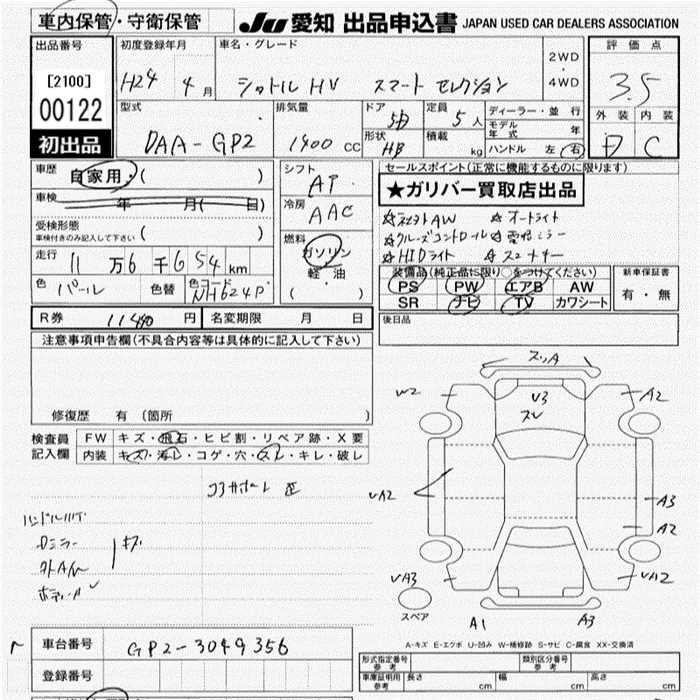 車内保管・守衛保管
JU 愛知 出品申込書 JAPAN USED CAR DEALERS ASSOCIATION
出品番号
[2100]
00122
初出品
初度登録年月
H24 4月
車名・グレード
シャトル HV スマート セレクション
2WD
・
4WD
評価点
3.5
外装 内装
D C
型式
DAA-GP2
排気量
1400 CC
ドア
5D
形状
HB
定員
5人
積載
kg
ディーラー・並 行
モデル年式 年
ハンドル 左 右
車歴
自家用・( )
車検
年 月( 日)
受検形態
車検付きのみ記入して下さい ( )
走行
11万6千654km
色
パール
色替
色コード
NH624P
シフト
AT
冷房
AAC
燃料
ガソリン
軽 油
( )
セールスポイント(正常に機能するものに限ります)
★ガリバー買取店出品
☆社外AW ☆オートライト
☆クルーズコントロール ☆電格ミラー
☆HIDライト ☆スマートキー
装備品(純正品に限り○をつけてください)
PS PW エアB AW
SR ナビ TV カワシート
新車保証書
有・無
後日品
R券 11440円 名変期限 月 日
注意事項申告欄(不具合内容等は具体的に記入して下さい)
修復歴 有 (箇所 )
検査員
記入欄
FW キズ・飛石・ヒビ割・リペア跡・X要
内装 キズ・汚レ・コゲ・穴・スレ・キレ・破レ
コアサポート
ハンドル
Dミラー
外AW
キズ
スリA
W2
A2
U3
スレ
UA2
A3
A2
UA3
UA2
スペア
A1
A3
A-キズ E-エクボ U-凹み W-補修跡 S-サビ C-腐食 XX-交換済
車台番号 GP2-3049356
登録番号
形式指定番号
参考
類別区分番号
参考
車庫証明用
参考
長さ cm 幅 cm 高さ cm